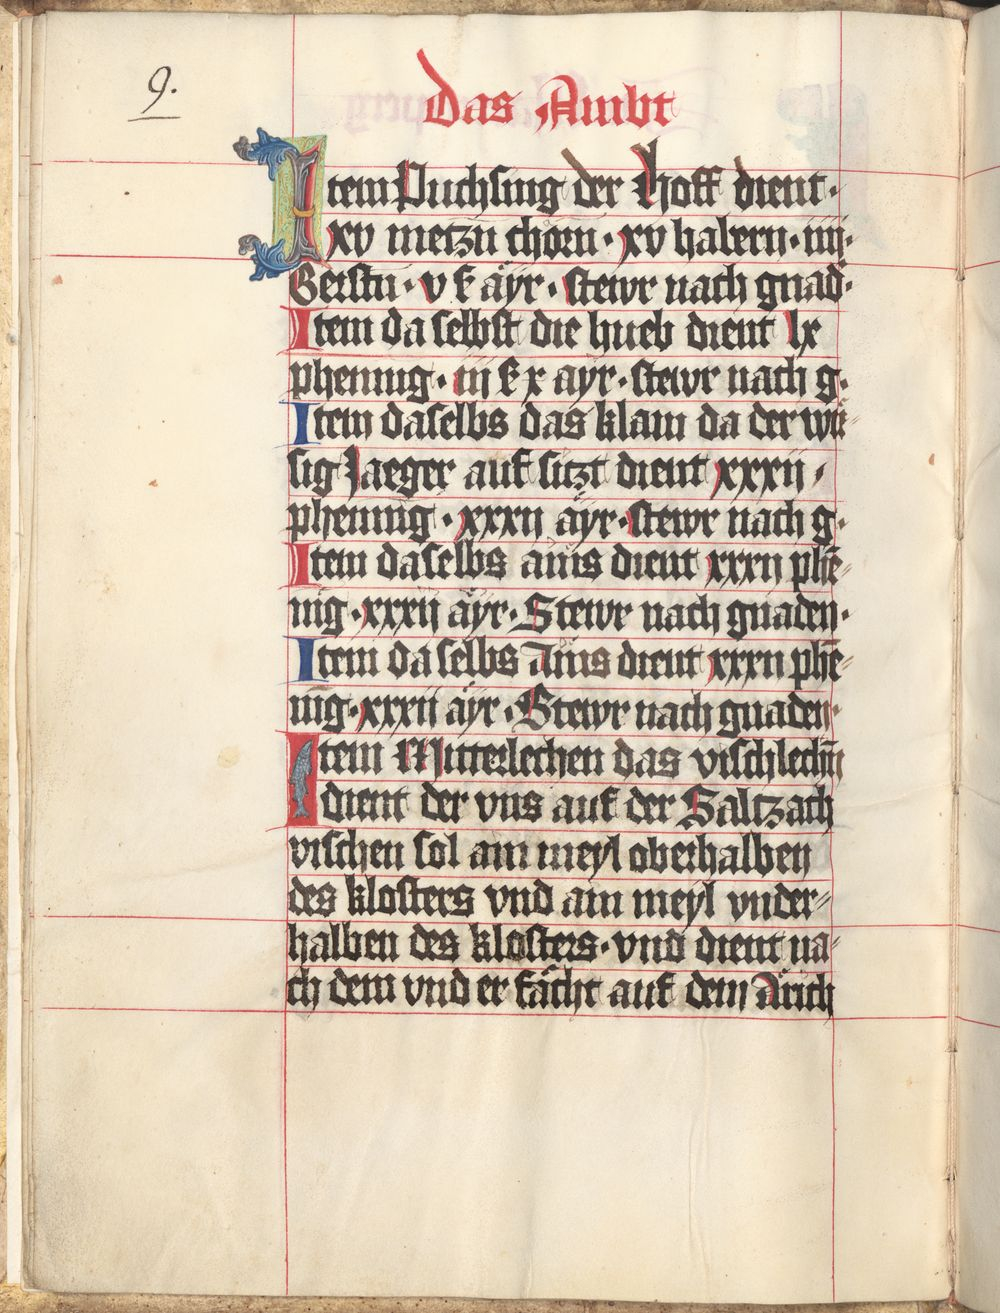 9.
Das Ambt
Item Puchsing der Hoff dient·
xv metzn chorn · xv habern · iiij·
Gerstn · v ß äyr · stewr nach gnad·
Item da selbst die hueb dient lx
phennig · iij ß x ayr · stewr nach g·
Item daselbs das klain da der wei
sig Jaeger auf sitzt dient xxxij ·
phennig · xxxij äyr · stewr nach g·
Item daselbs ains dient xxxij phē-
nig · xxxij äyr · Stewr nach gnaden·
Item da selbs Ains dient xxxij phē-
nig · xxxij äyr · Stewr nach gnaden·
Item Mitterlechen das vischlechn̄
dient der vns auf der Saltzach
vischen sol ain meyl oberhalben
des klosters vnd ain meyl vnder-
halben des klosters · vnd dient na-
ch dem vnd er fächt auf dem Aïich